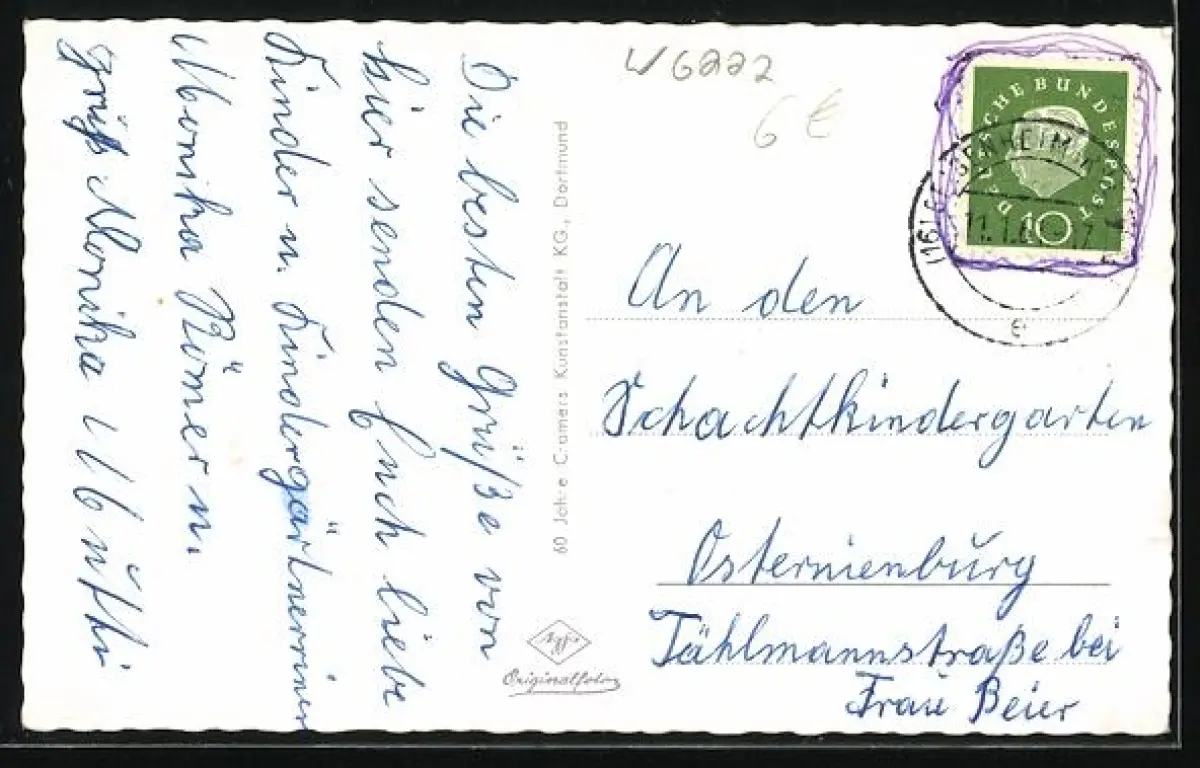 Die besten Grüße von
hier senden Euch liebe
Kinder u. Kindergärtnerrinen
Monika Römer u.
grüß Monika
60 Jahre Cramers Kunstanstalt KG., Dortmund
Agfa
Originalfoto
W6222
6 €
DEUTSCHE BUNDESPOST
10
(16)
e
An den
Schachtkindergarten
Osternienburg
Tählmannstraße bei
Frau Beier